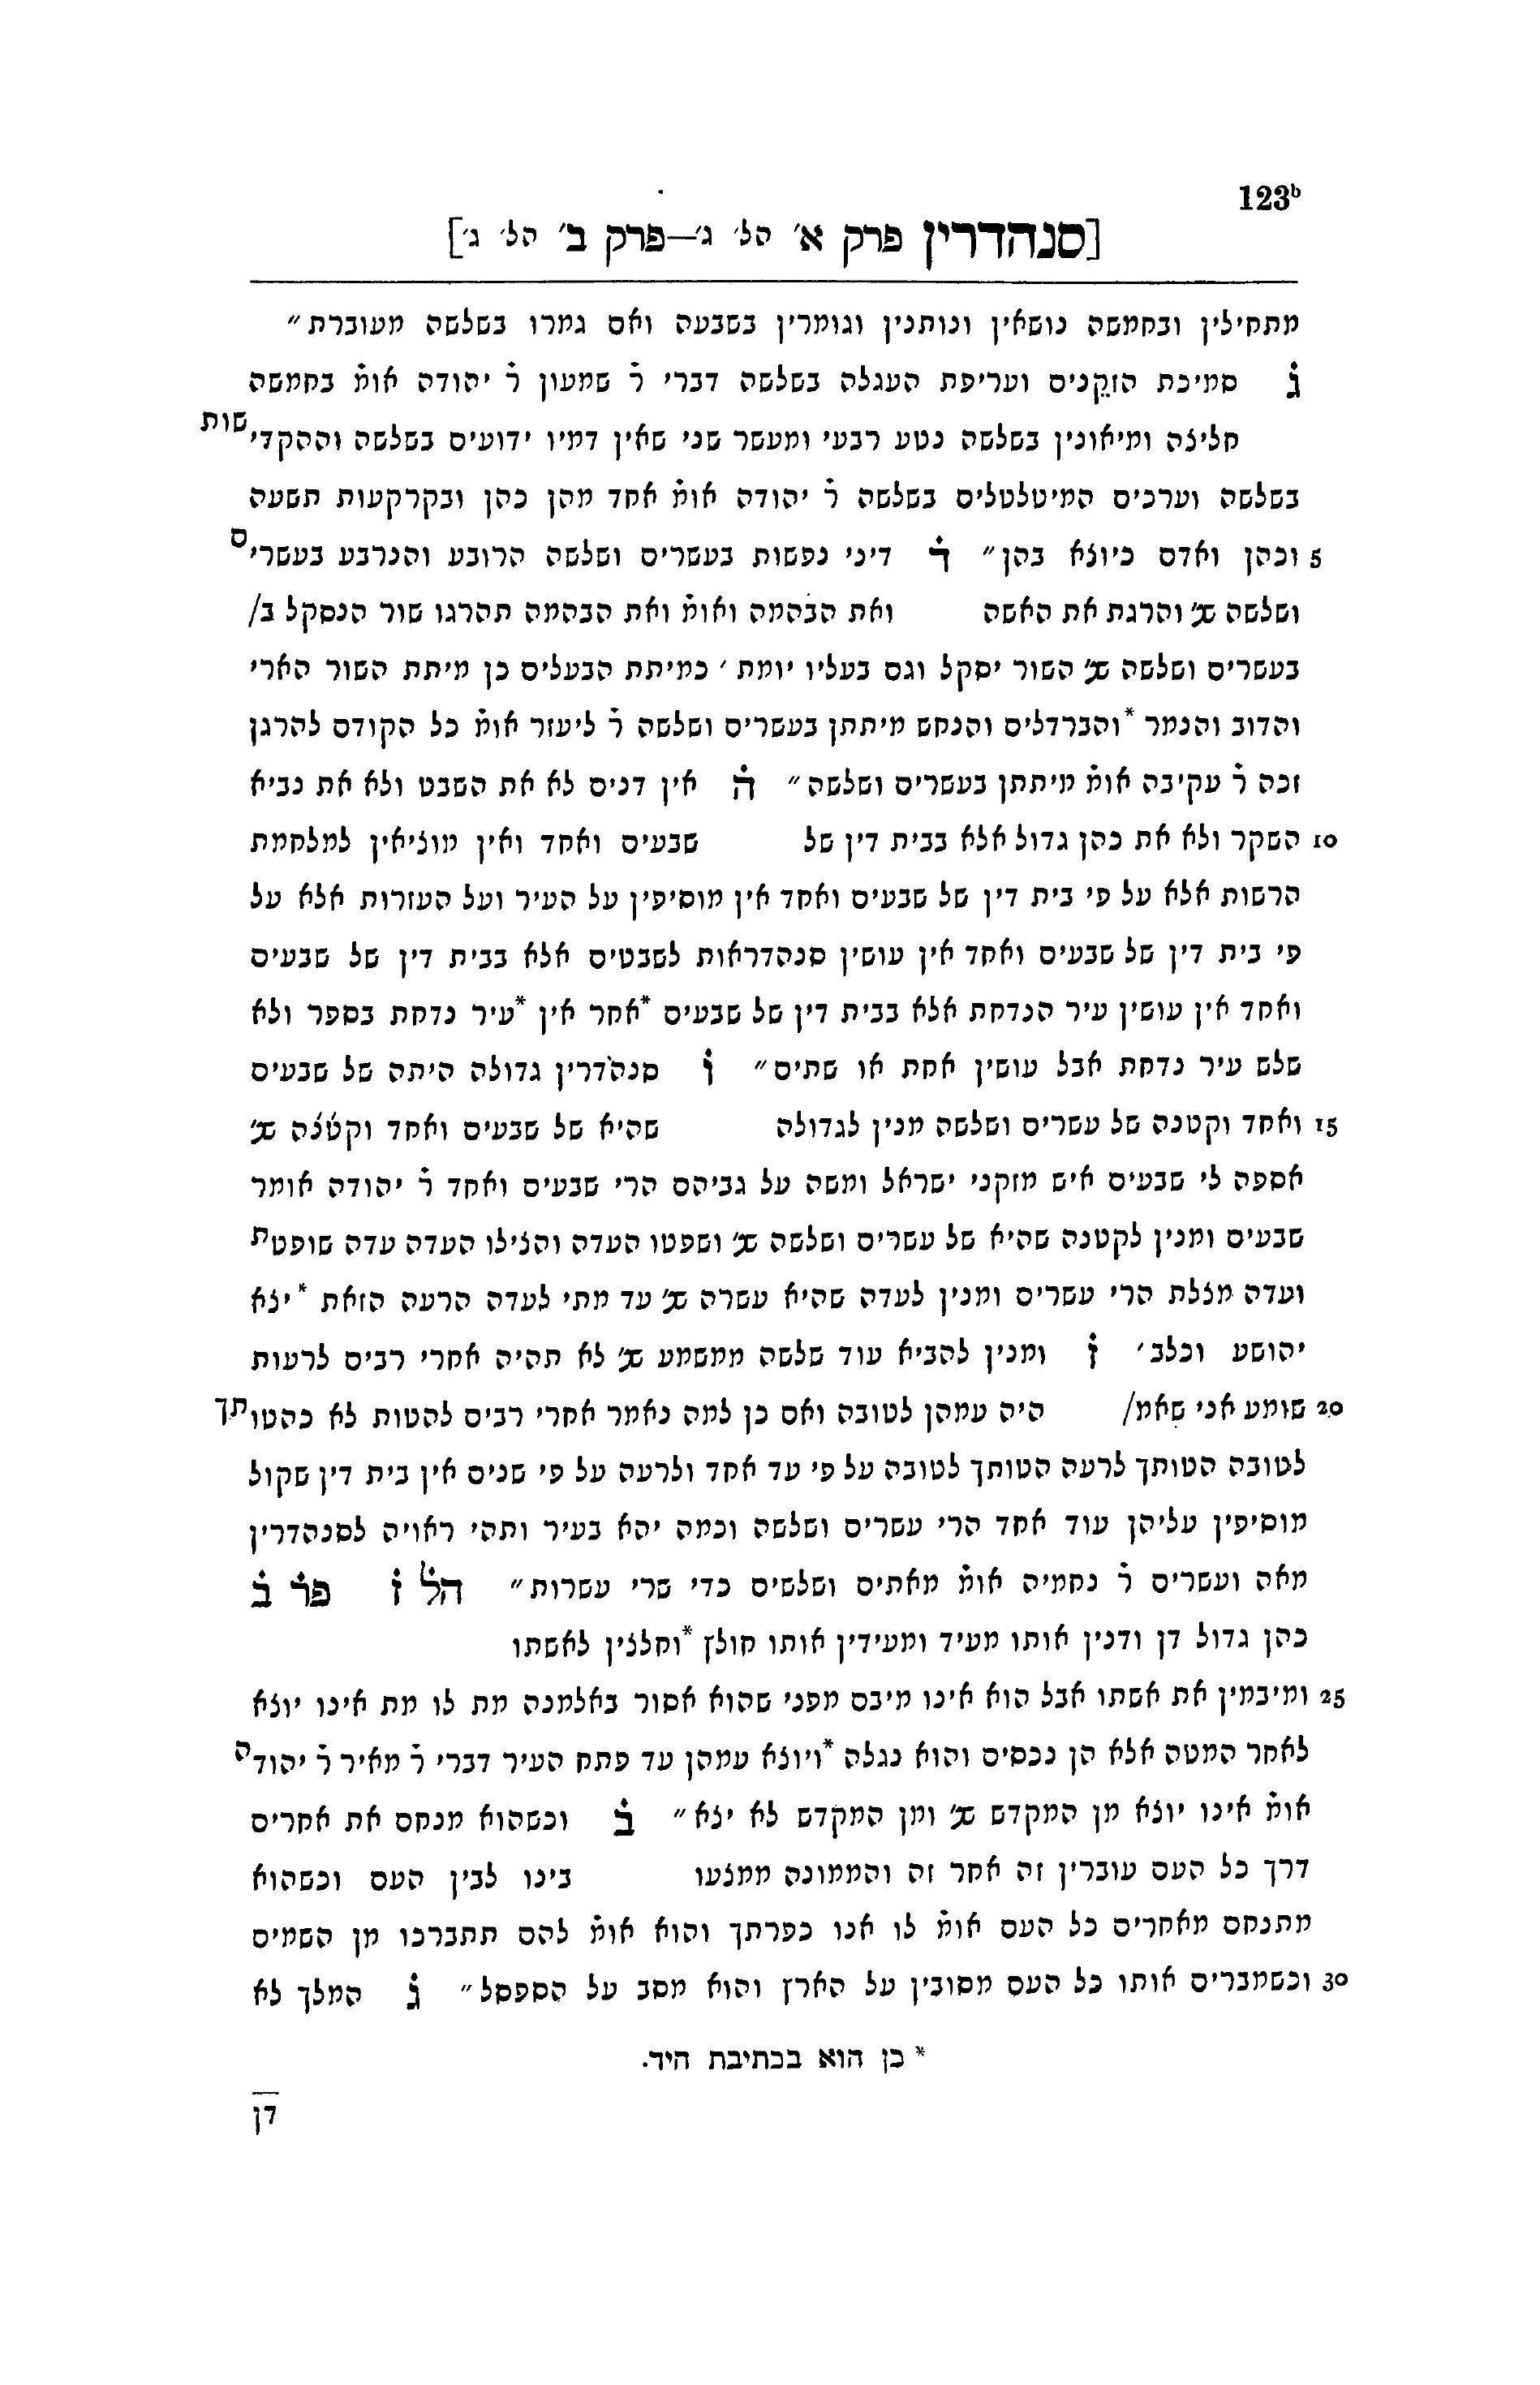 123ᵇ
[סנהדרין פרק א׳ הל׳ ג׳—פרק ב׳ הל׳ ג׳]
מתחילין ובחמשה נושאין ונותנין וגומרין בשבעה ואם גמרו בשלשה מעוברת״
ג̇ סמיכת הזקנים ועריפת העגלה בשלשה דברי ר̇ שמעון ר̇ יהודה אומ̇ בחמשה
חליצה ומיאונין בשלשה נטע רבעי ומעשר שני שאין דמיו ידועים בשלשה וההקדישות
בשלשה וערכים המיטלטלים בשלשה ר̇ יהודה אומ̇ אחד מהן כהן ובקרקעות תשעה
5 וכהן ואדם כיוצא בהן״ ד̇ דיני נפשות בעשרים ושלשה הרובע והנרבע בעשרים
ושלשה שנ׳ והרגת את האשה ואת הבהמה ואומ̇ ואת הבהמה תהרגו שור הנסקל ב/
בעשרים ושלשה שנ׳ השור יסקל וגם בעליו יומת ׳ כמיתת הבעלים כן מיתת השור הארי
והדוב והנמר *והברדלים והנחש מיתתן בעשרים ושלשה ר̇ ליעזר אומ̇ כל הקודם להרגן
זכה ר̇ עקיבה אומ̇ מיתתן בעשרים ושלשה״ ה̇ אין דנים לא את השבט ולא את נביא
10 השקר ולא את כהן גדול אלא בבית דין של שבעים ואחד ואין מוציאין למלחמת
הרשות אלא על פי בית דין של שבעים ואחד אין מוסיפין על העיר ועל העזרות אלא על
פי בית דין של שבעים ואחד אין עושין סנהדראות לשבטים אלא בבית דין של שבעים
ואחד אין עושין עיר הנדחת אלא בבית דין של שבעים *אחר אין *עיר נדחת בספר ולא
שלש עיר נדחת אבל עושין אחת או שתים״ ו̇ סנהדרין גדולה היתה של שבעים
15 ואחד וקטנה של עשרים ושלשה מנין לגדולה שהיא של שבעים ואחד וקטנה שנ׳
אספה לי שבעים איש מזקני ישראל ומשה על גביהם הרי שבעים ואחד ר̇ יהודה אומר
שבעים ומנין לקטנה שהיא של עשרים ושלשה שנ׳ ושפטו העדה והצילו העדה עדה שופטת
ועדה מצלת הרי עשרים ומנין לעדה שהיא עשרה שנ׳ עד מתי לעדה הרעה הזאת *יצא
יהושע וכלב׳ ז̇ ומנין להביא עוד שלשה ממשמע שנ׳ לא תהיה אחרי רבים לרעות
20 שומע אני שאמ/ היה עמהן לטובה ואם כן למה נאמר אחרי רבים להטות לא כהטותך
לטובה הטותך לרעה הטותך לטובה על פי עד אחד ולרעה על פי שנים אין בית דין שקול
מוסיפין עליהן עוד אחד הרי עשרים ושלשה וכמה יהא בעיר ותהי ראויה לסנהדרין
מאה ועשרים ר̇ נחמיה אומ̇ מאתים ושלשים כדי שרי עשרות״ הל̇ ז̇ פר̇ ב̇
כהן גדול דן ודנין אותו מעיד ומעידין אותו חולץ *וחלצין לאשתו
25 ומיבמין את אשתו אבל הוא אינו מיבם מפני שהוא אסור באלמנה מת לו מת אינו יוצא
לאחר המטה אלא הן נכסים והוא נגלה *ויוצא עמהן עד פתח העיר דברי ר̇ מאיר ר̇ יהודה
אומ̇ אינו יוצא מן המקדש שנ׳ ומן המקדש לא יצא״ ב̇ וכשהוא מנחם את אחרים
דרך כל העם עוברין זה אחר זה והממונה ממצעו בינו לבין העם וכשהוא
מתנחם מאחרים כל העם אומ̇ לו אנו כפרתך והוא אומ̇ להם תתברכו מן השמים
30 וכשמברים אותו כל העם מסובין על הארץ והוא מסב על הספסל״ ג̇ המלך לא
* כן הוא בכתיבת היד.
דן